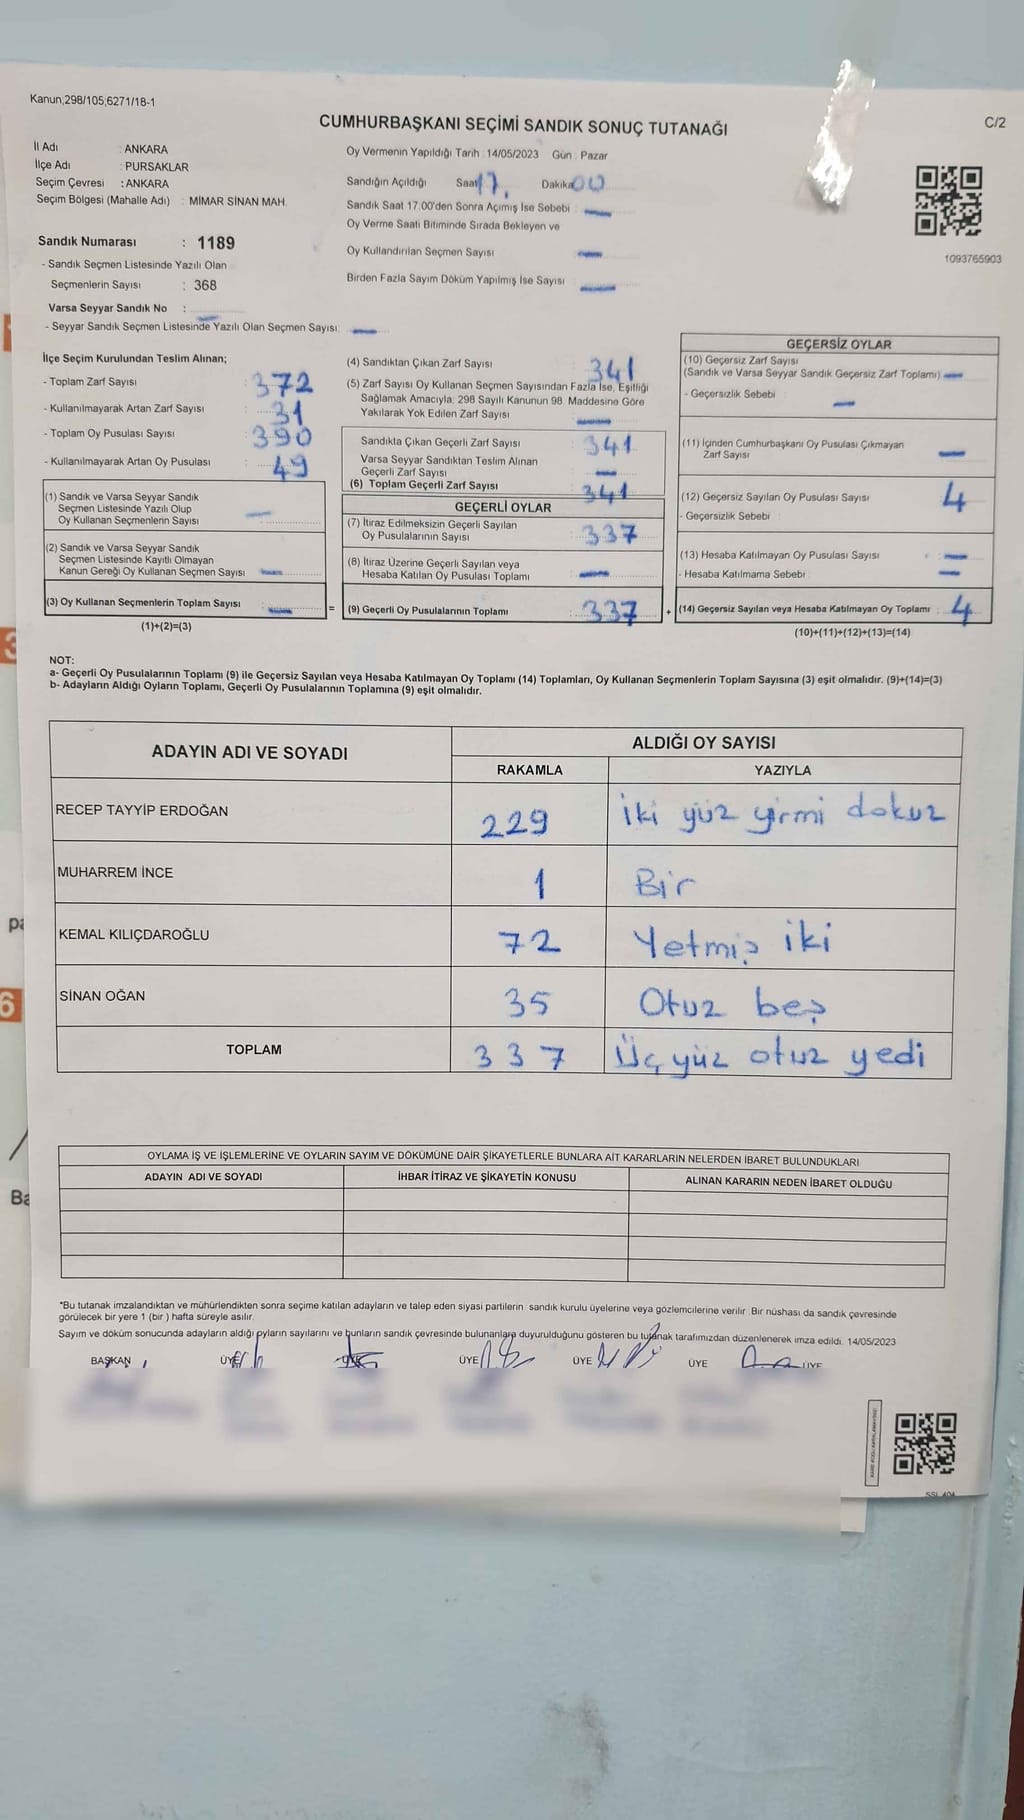 Kanun;298/105;6271/18-1
C/2
CUMHURBAŞKANI SEÇİMİ SANDIK SONUÇ TUTANAĞI
İl Adı : ANKARA
İlçe Adı : PURSAKLAR
Seçim Çevresi : ANKARA
Seçim Bölgesi (Mahalle Adı) : MİMAR SİNAN MAH.
Sandık Numarası : 1189
- Sandık Seçmen Listesinde Yazılı Olan
Seçmenlerin Sayısı : 368
Varsa Seyyar Sandık No :
- Seyyar Sandık Seçmen Listesinde Yazılı Olan Seçmen Sayısı:
Oy Vermenin Yapıldığı Tarih : 14/05/2023 Gün : Pazar
Sandığın Açıldığı Saat 17. Dakika 00
Sandık Saat 17:00'den Sonra Açımış İse Sebebi :
Oy Verme Saati Bitiminde Sırada Bekleyen ve
Oy Kullandırılan Seçmen Sayısı
Birden Fazla Sayım Döküm Yapılmış İse Sayısı
1093765903
İlçe Seçim Kurulundan Teslim Alınan;
- Toplam Zarf Sayısı : 372
- Kullanılmayarak Artan Zarf Sayısı : 31
- Toplam Oy Pusulası Sayısı : 390
- Kullanılmayarak Artan Oy Pusulası : 49
(1) Sandık ve Varsa Seyyar Sandık
Seçmen Listesinde Yazılı Olup
Oy Kullanan Seçmenlerin Sayısı :
(2) Sandık ve Varsa Seyyar Sandık
Seçmen Listesinde Kayıtlı Olmayan
Kanun Gereği Oy Kullanan Seçmen Sayısı :
(3) Oy Kullanan Seçmenlerin Toplam Sayısı :
(1)+(2)=(3)
=
(4) Sandıktan Çıkan Zarf Sayısı : 341
(5) Zarf Sayısı Oy Kullanan Seçmen Sayısından Fazla İse, Eşitliği
Sağlamak Amacıyla; 298 Sayılı Kanunun 98. Maddesine Göre
Yakılarak Yok Edilen Zarf Sayısı
Sandıkta Çıkan Geçerli Zarf Sayısı : 341
Varsa Seyyar Sandıktan Teslim Alınan
Geçerli Zarf Sayısı
(6) Toplam Geçerli Zarf Sayısı : 341
GEÇERLİ OYLAR
(7) İtiraz Edilmeksizin Geçerli Sayılan
Oy Pusulalarının Sayısı : 337
(8) İtiraz Üzerine Geçerli Sayılan veya
Hesaba Katılan Oy Pusulası Toplamı :
(9) Geçerli Oy Pusulalarının Toplamı : 337
+
GEÇERSİZ OYLAR
(10) Geçersiz Zarf Sayısı
(Sandık ve Varsa Seyyar Sandık Geçersiz Zarf Toplamı)
- Geçersizlik Sebebi :
(11) İçinden Cumhurbaşkanı Oy Pusulası Çıkmayan
Zarf Sayısı
(12) Geçersiz Sayılan Oy Pusulası Sayısı 4
- Geçersizlik Sebebi :
(13) Hesaba Katılmayan Oy Pusulası Sayısı :
- Hesaba Katılmama Sebebi :
(14) Geçersiz Sayılan veya Hesaba Katılmayan Oy Toplamı : 4
(10)+(11)+(12)+(13)=(14)
NOT:
a- Geçerli Oy Pusulalarının Toplamı (9) ile Geçersiz Sayılan veya Hesaba Katılmayan Oy Toplamı (14) Toplamları, Oy Kullanan Seçmenlerin Toplam Sayısına (3) eşit olmalıdır. (9)+(14)=(3)
b- Adayların Aldığı Oyların Toplamı, Geçerli Oy Pusulalarının Toplamına (9) eşit olmalıdır.
ADAYIN ADI VE SOYADI ALDIĞI OY SAYISI
RAKAMLA YAZIYLA
RECEP TAYYİP ERDOĞAN 229 İki yüz yirmi dokuz
MUHARREM İNCE 1 Bir
KEMAL KILIÇDAROĞLU 72 Yetmiş iki
SİNAN OĞAN 35 Otuz beş
TOPLAM 337 Üç yüz otuz yedi
OYLAMA İŞ VE İŞLEMLERİNE VE OYLARIN SAYIM VE DÖKÜMÜNE DAİR ŞİKAYETLERLE BUNLARA AİT KARARLARIN NELERDEN İBARET BULUNDUKLARI
ADAYIN ADI VE SOYADI İHBAR İTİRAZ VE ŞİKAYETİN KONUSU ALINAN KARARIN NEDEN İBARET OLDUĞU
*Bu tutanak imzalandıktan ve mühürlendikten sonra seçime katılan adayların ve talep eden siyasi partilerin sandık kurulu üyelerine veya gözlemcilerine verilir. Bir nüshası da sandık çevresinde
görülecek bir yere 1 (bir ) hafta süreyle asılır.
Sayım ve döküm sonucunda adayların aldığı oyların sayılarını ve bunların sandık çevresinde bulunanlara duyurulduğunu gösteren bu tutanak tarafımızdan düzenlenerek imza edildi. 14/05/2023
BAŞKAN ÜYE ÜYE ÜYE ÜYE ÜYE ÜYE